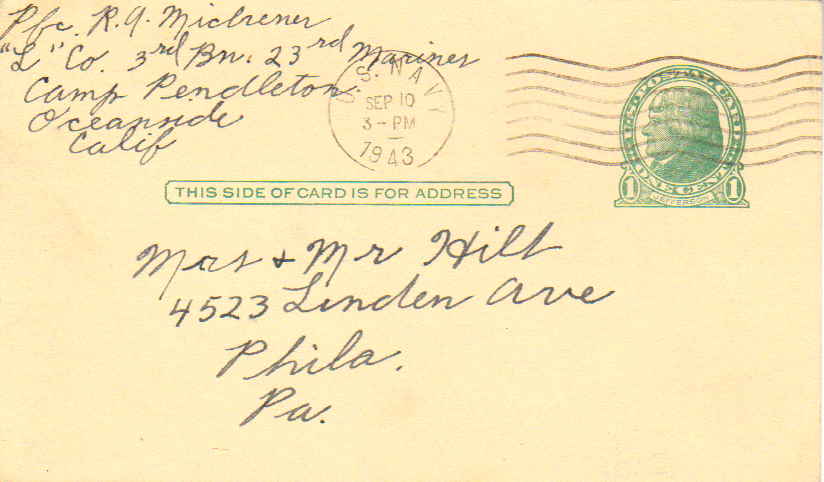 Pfc. R. A. Michener
"L" Co. 3rd Bn. 23rd Marines
Camp Pendleton
Oceanside
Calif
U.S. NAVY
SEP 10
3-PM
1943
U.S. POSTAL CARD
ONE CENT
1 1
JEFFERSON
THIS SIDE OF CARD IS FOR ADDRESS
Mrs + Mr Hilt
4523 Linden Ave
Phila.
Pa.